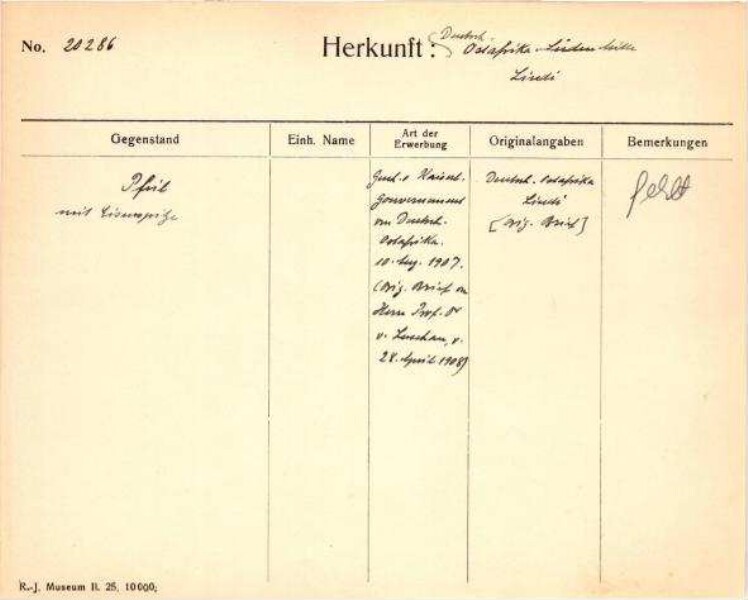 No. 20286
Herkunft: Deutsch.
Ostafrika. Süden Mitte
Lindi
Gegenstand
Einh. Name
Art der
Erwerbung
Originalangaben
Bemerkungen
Pfeil
mit Eisenspitze
Gesch. v. Kaiserl.
Gouvernement
von Deutsch.
Ostafrika.
10. Aug. 1907.
(Orig. Brief von
Herrn Prof. Dr
v. Luschan, v.
28. April 1908)
Deutsch. Ostafrika
Lindi
[Orig. Brief]
fehlt
R.-J. Museum B. 25. 10000;